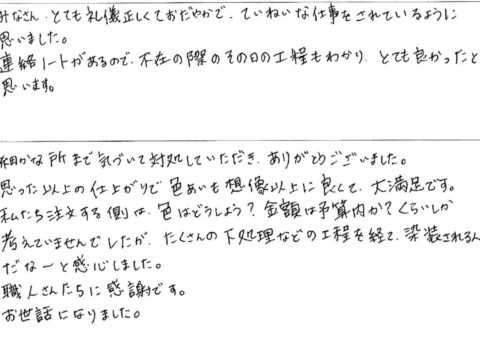 みなさん、とても礼儀正しくておだやかで、ていねいな仕事をされているように
思いました。
連絡ノートがあるので、不在の際のその日の工程もわかり、とても良かったと
思います。
細かな所まで気づいて対処していただき、ありがとうございました。
思った以上の仕上がりで色あいも想像以上に良くて、大満足です。
私たち注文する側は、色はどうしよう?金額は予算内か?くらいしか
考えていませんでしたが、たくさんの下処理などの工程を経て、染装されるん
だな～と感心しました。
職人さんたちに感謝です。
お世話になりました。